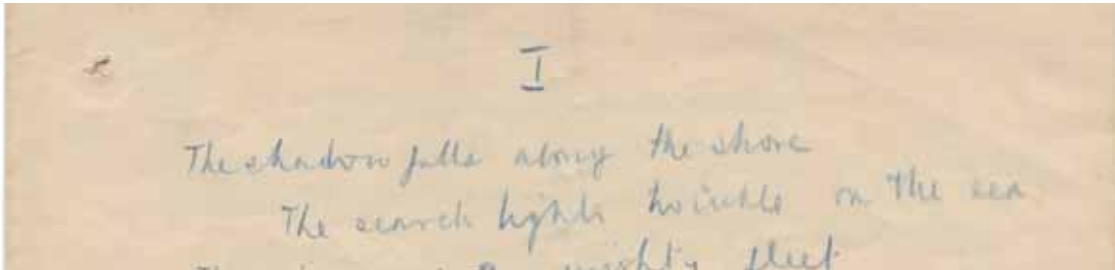 I
The shadow falls along the shore
The search lights twinkle on the sea
The a mighty fleet